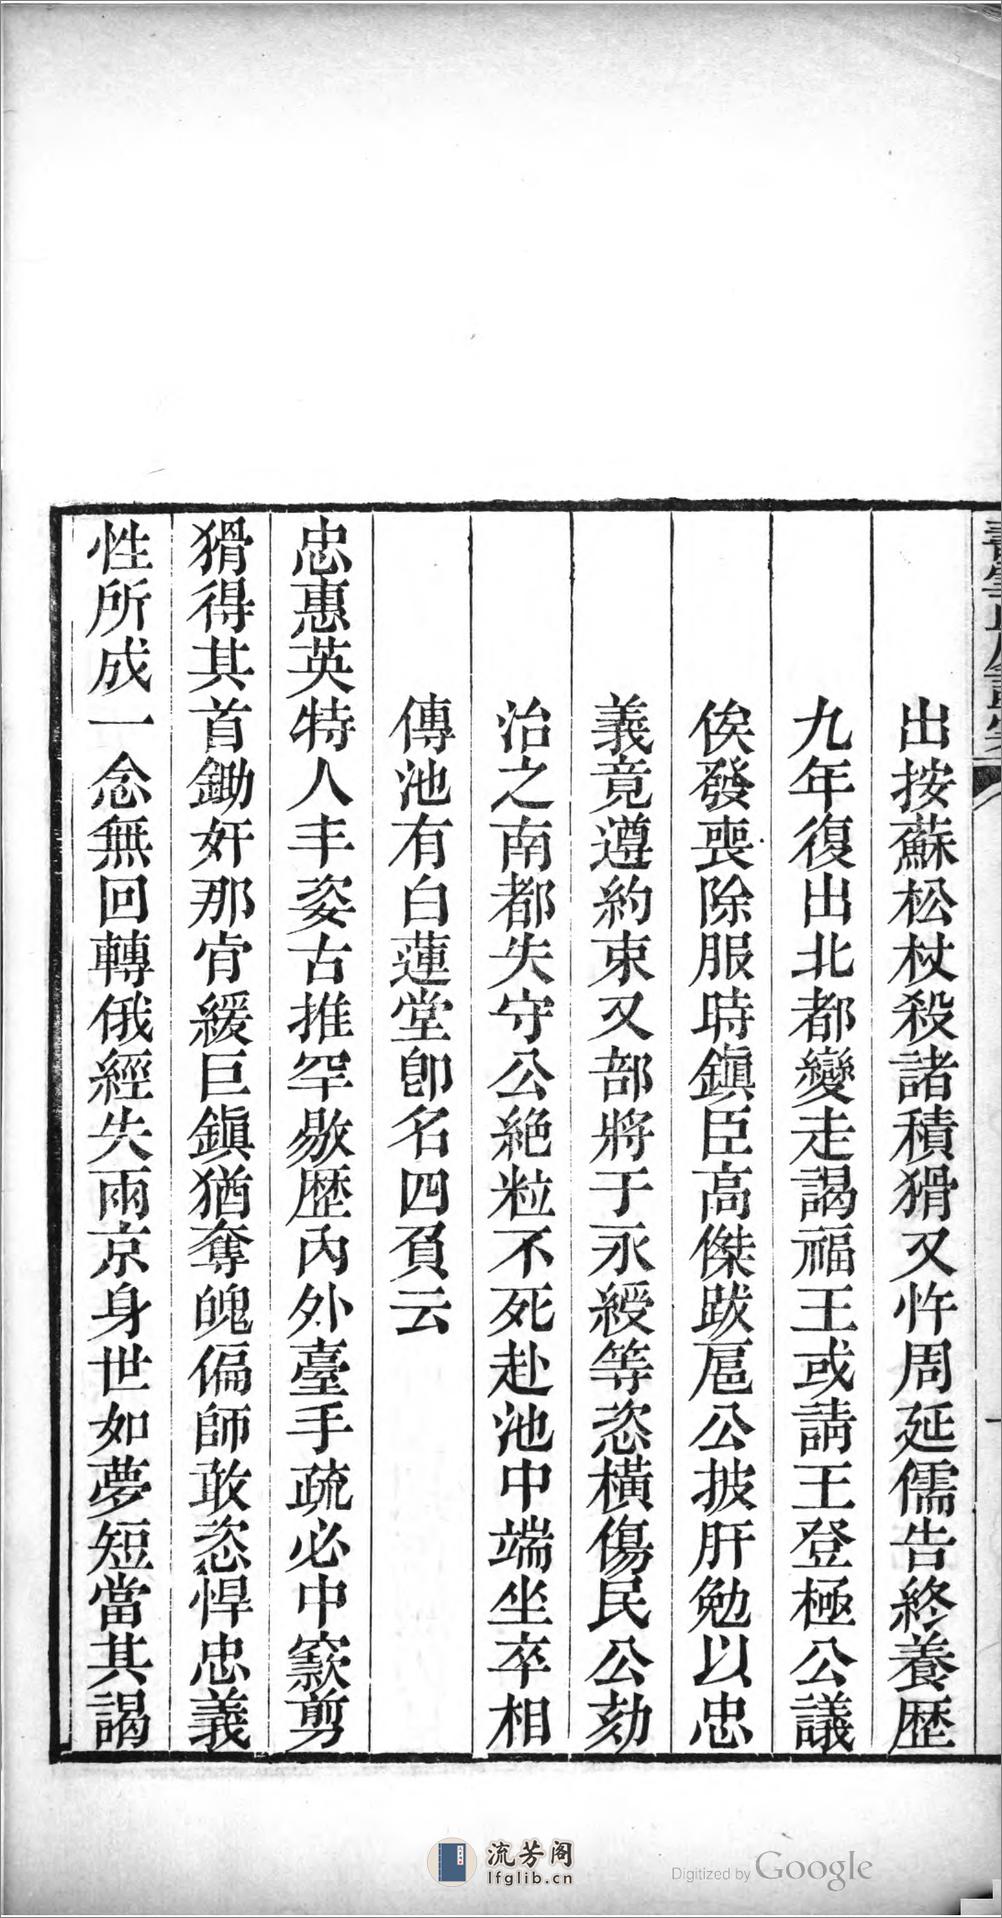 出按蘇松杖殺諸積猾又忤周延儒告終養歴
九年復出北都變走謁福王或請王登極公議
俟發喪除服時鎭臣高傑跋扈公披肝勉以忠
義竟遵約束又部將于永綬等恣橫傷民公劾
治之南都失守公絶粒不死赴池中端坐卒相
傳池有白蓮堂卽名四負云
忠惠英特人丰姿古推罕敭歴內外臺手疏必中窽剪
猾得其首鋤奸那肯緩巨鎭猶奪魄偏師敢恣悍忠義
性所成一念無回轉俄經失兩京身世如夢短當其謁
流芳阁
lfglib.cn
Digitized by Google